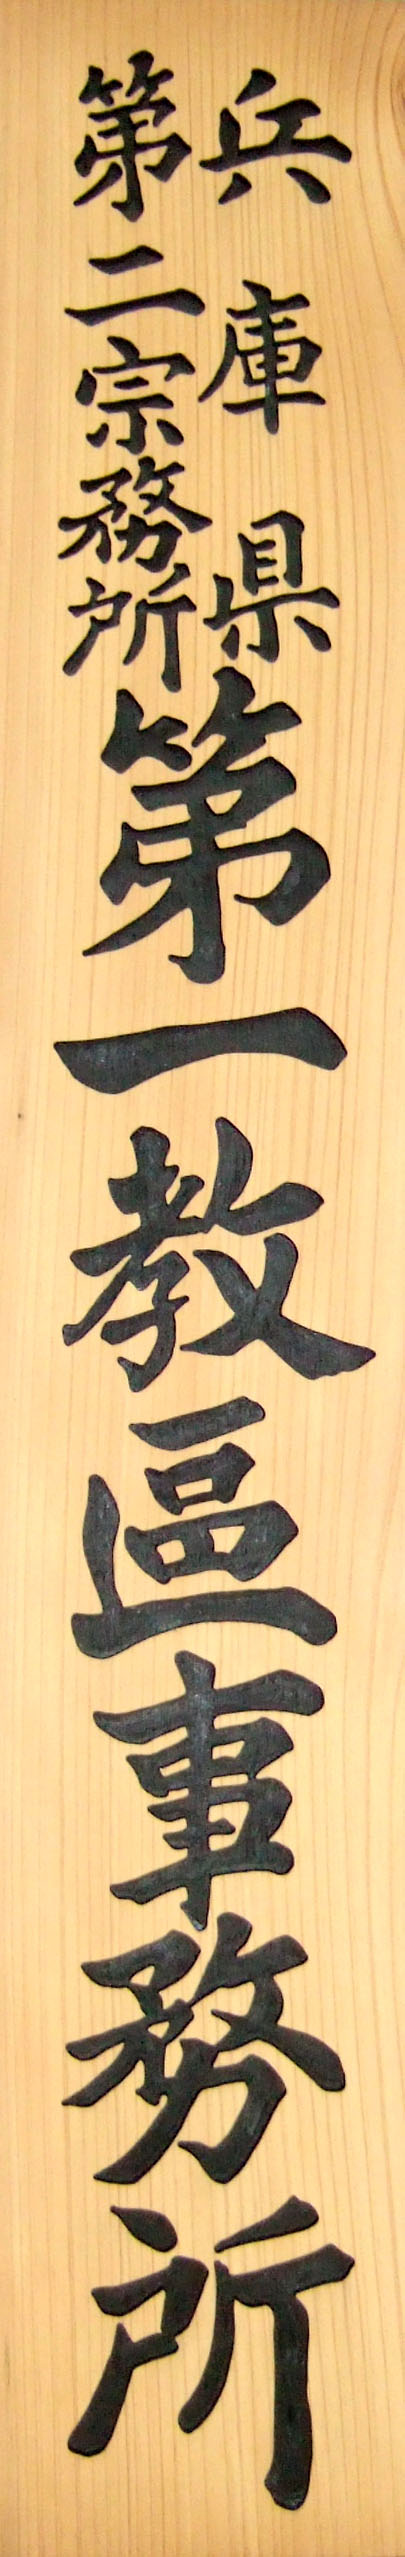 兵庫県
第二宗務所
第一教區事務所